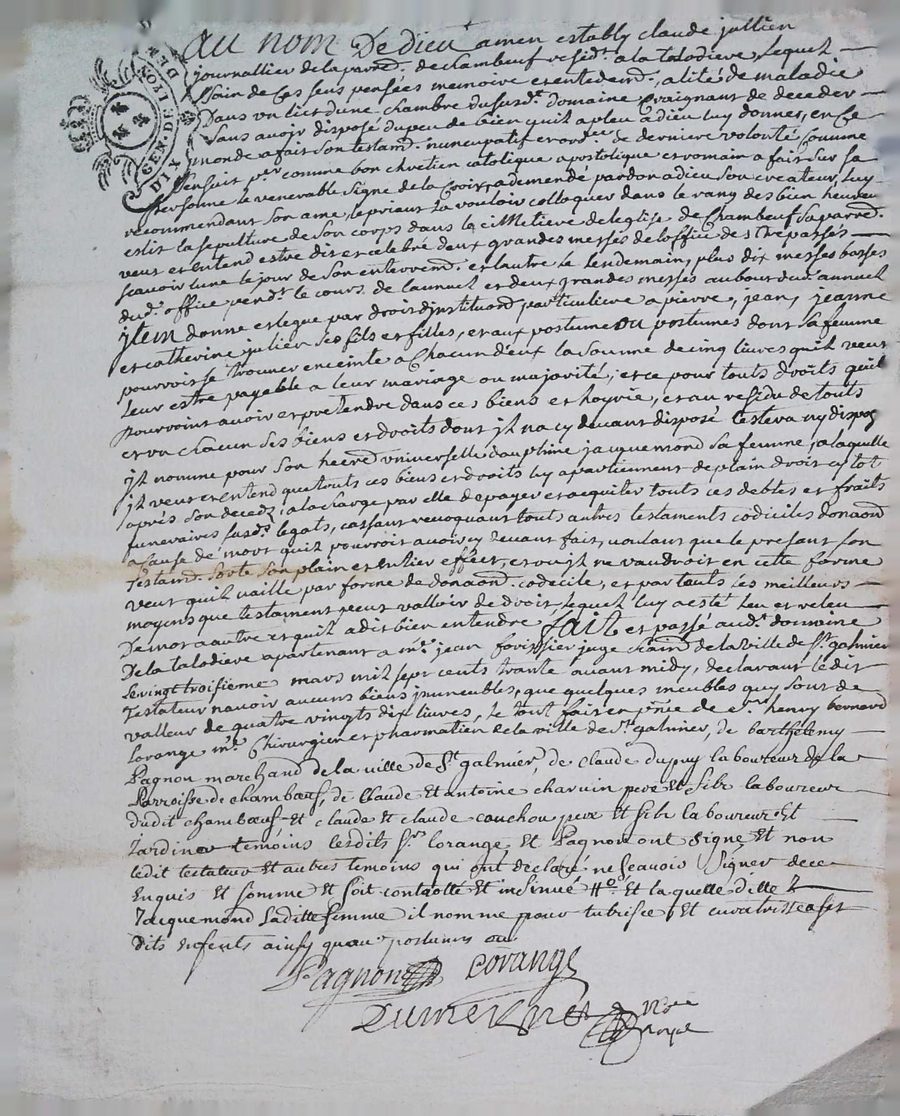 GEN DE LYON DIX DEN
au nom De dieu amen estably claude jullien
journallier de la parred. de chambœuf resid.t a la taladiere, lequel
Sain de ses sens pensées memoire et entendem.t alité de maladie
dans un lict d'une chambre du susd.t domaine craignant de deceder
Sans avoir disposé du peu de bien quil a pleu a dieu luy donner, en ce
monde a fait son testam.t nuncupatif et ord.ce de derniere volonté comme
sensuit p.er comme bon chretien catolique apostolique et romain a fait sur sa
personne le venerable signe de la croix, a demendé pardon a dieu son createur, luy
recommendant son ame le prient la vouloir colloquer dans le rang des bien heureux
eslit la sepulture de son corps dans la cimetiere de leglise de chambœuf sa parred.
veut et entend estre dit et celebré deux grandes messes de loffice des trepassés
scavoir lune le jour de son enterrem.t et lautre le lendemain, plus dix messes basses
dud. office pend.t le cours de lannuel et deux grandes messes au bout dun annuel
jtem donne et legue par droit dinstituaon particuliere a pierre, jean, jeanne
et catherine julien ses fils et filles, et aux postume ou postumes dont sa femme
pourroit se trouver enceinte a chacun deux la somme de cinq livres quil veut
leur estre payable a leur mariage ou majorité, et ce pour touts droits quils
pourroint avoir et pretendre dans ces biens et hoyrie, et au residu de touts
et un chacun ses biens et droits dont jl na cy devant disposé testera ny dispose
jl nomme pour son heered. universelle dauphine jacquemond sa femme, a laquelle
jl veut et entend que touts ces biens et droits luy apartiennent de plain droit cytot
après son decedz, a la charge par elle de payer et acquiter touts ces debtes et fraits
funeraires susd. legats, cassant revoquant touts autres testaments codiciles donaons
a cause de mort quil pourroit avoir cy devant fait, voulant que le present son
testam.t sorte son plain et entier effect, et ou jl ne vaudroit en cette forme
veut quil vaille par forme de donaon. codecile, et par touts les meilleurs
moyens que testament peut valloir de droit, lequel luy a esté leu et releu
de mot a autre et quil a dit bien entendre fait et passé aud. domaine
de la taladiere apartenant a m.re jean forissier juge chatn. de la ville de s.t galmier
le vingt troisieme mars mil sept cents trante avant midy, declarant ledit
testateur navoir aucuns biens jmmeubles, que quelques meubles quy sont de
valleur de quatre vingts dix livres, le tout fait en p.nce de s.r henry bernard
lorange m.e chirurgien et pharmatien de la ville de s.t galmier, de barthelemy
Pagnon marchand de la ville de s.t galmier, de claude dupuy laboureur de la
Parroisse de chambœuf, de claude et antoine charvin pere et filz laboureur
dudit chambœuf et claude et claude couchou pere et filz laboureur et
Jardinier temoins lesdits s.rs lorange et Pagnon ont signé et non
ledit testateur et autres temoins qui ont declaré ne scavoir signer de ce
enquis et sommé et soit controllé et insinué et la quelle ditte
Jacquemond laditte femme il nomme pour tutrisse et curatrisse a ses
dits enfents ainsy quau postumes ou
Pagnon Lorange
Dumeynet no.re
royal